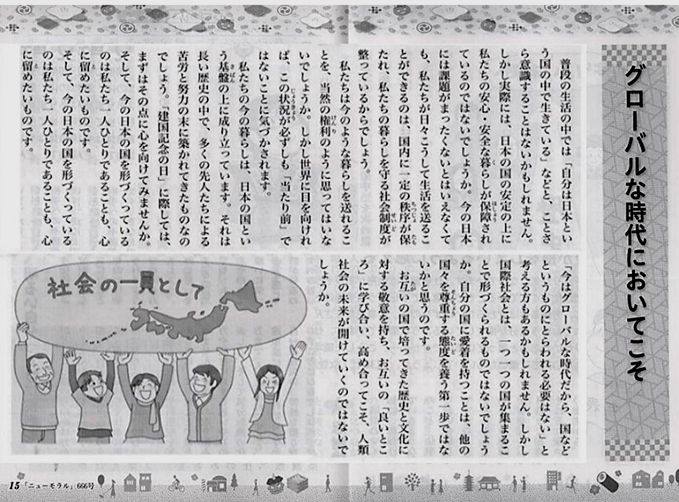 グローバルな時代においてこそ
普段の生活の中では「自分は日本とい
う国の中で生きている」などと、ことさ
ら意識することはないかもしれません。
しかし実際には、日本の国の安定の上に
私たちの安心・安全な暮らしが保障され
ているのではないでしょうか。今の日本
には課題がまったくないとはいえなくて
も、私たちが日々こうして生活を送るこ
とができるのは、国内に一定の秩序が保
たれ、私たちの暮らしを守る社会制度が
整っているからでしょう。
私たちは今のような暮らしを送れるこ
とを、当然の権利のように思ってはいな
いでしょうか。しかし世界に目を向けれ
ば、この状況が必ずしも「当たり前」で
はないことに気づかされます。
私たちの今の暮らしは、日本の国とい
う基盤の上に成り立っています。それは
長い歴史の中で、多くの先人たちによる
苦労と努力の末に築かれてきたものなの
でしょう。「建国記念の日」に際しては、
まずはその点に心を向けてみませんか。
そして、今の日本の国を形づくっている
のは私たち一人ひとりであることも、心
に留めたいものです。
そして、今の日本の国を形づくっている
のは私たち一人ひとりであることも、心
に留めたいものです。
「今はグローバルな時代だから、国など
というものにとらわれる必要はない」と
考える方もあるかもしれません。しかし
国際社会とは、一つ一つの国が集まるこ
とで形づくられるものではないでしょう
か。自分の国に愛着を持つことは、他の
国々を尊重する態度を養う第一歩ではな
いかと思うのです。
お互いの国で培ってきた歴史と文化に
対する敬意を持ち、お互いの「良いとこ
ろ」に学び合い、高め合ってこそ、人類
社会の未来が開けていくのではないで
しょうか。
社会の一員として
15「ニューモラル」666号